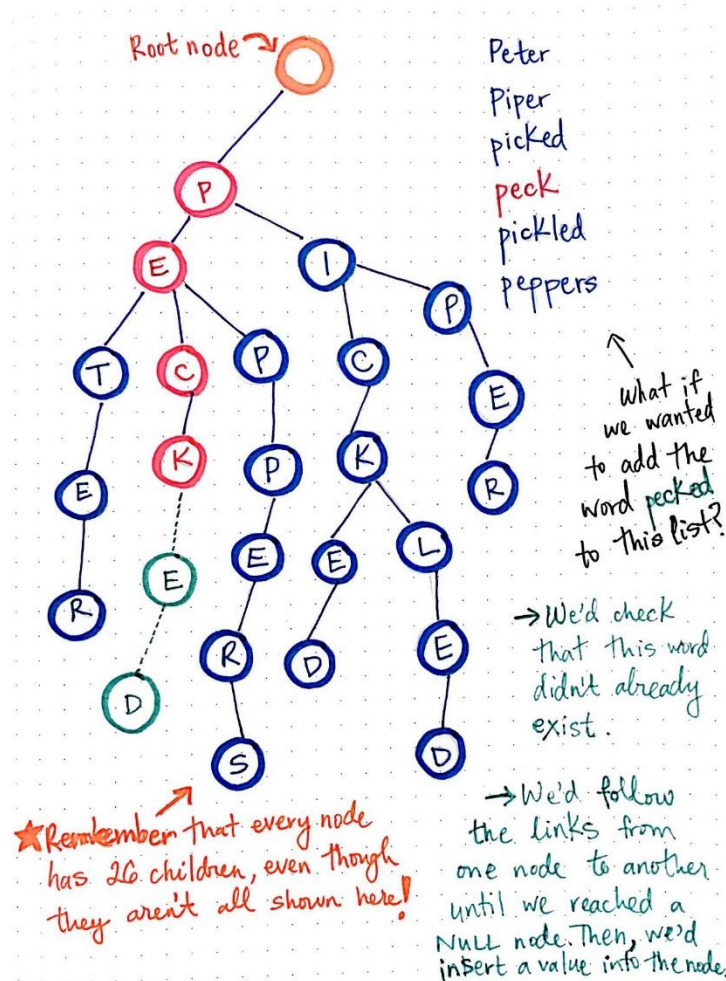 Root node
Peter
Piper
picked
peck
pickled
peppers
P
E
I
P
T
C
P
C
E
K
P
K
R
E
E
E
E
L
R
R
D
E
D
S
D
What if
we wanted
to add the
word pecked
to this list?
→ We'd check
that this word
didn't already
exist.
→ We'd follow
the links from
one node to another
until we reached a
NULL node. Then, we'd
insert a value into the node.
★ Remember that every node
has 26 children, even though
they aren't all shown here!